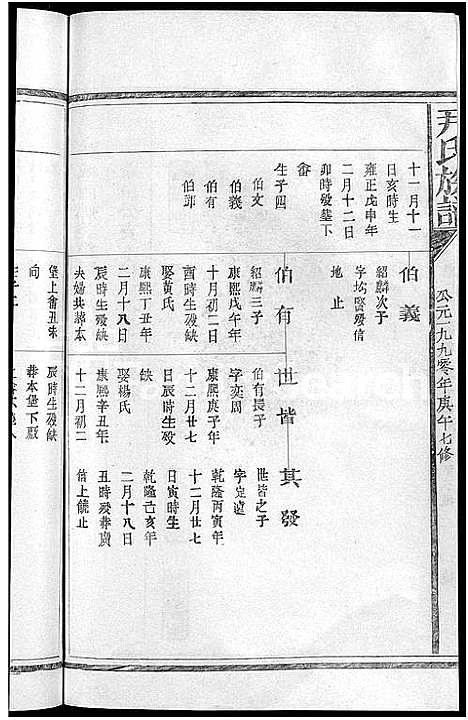 尹氏族譜
公元一九九零年庚午七修
十一月十一
日亥時生
雍正戊申年
二月十二日
卯時殁墓下
畲
生子四
伯文
伯義
伯有
伯義
紹麟次子
殁信
地止
伯有
紹麟三子
康熙戊午年
十月初二日
酉時生殁缺
娶黃氏
康熙丁丑年
二月十八日
辰時生殁缺
夫婦共葬本
堡上畲丑未
向
世皆
伯有長子
字奕周
康熙庚子年
十二月廿七
日辰時生殁
缺
娶楊氏
康熙辛丑年
十二月初二
辰時生殁缺
葬本堡下殿
其發
世皆之子
字定遠
乾隆丙寅年
十二月廿七
日寅時生
乾隆己亥年
二月十八日
丑時殁葬廣
信上饒止